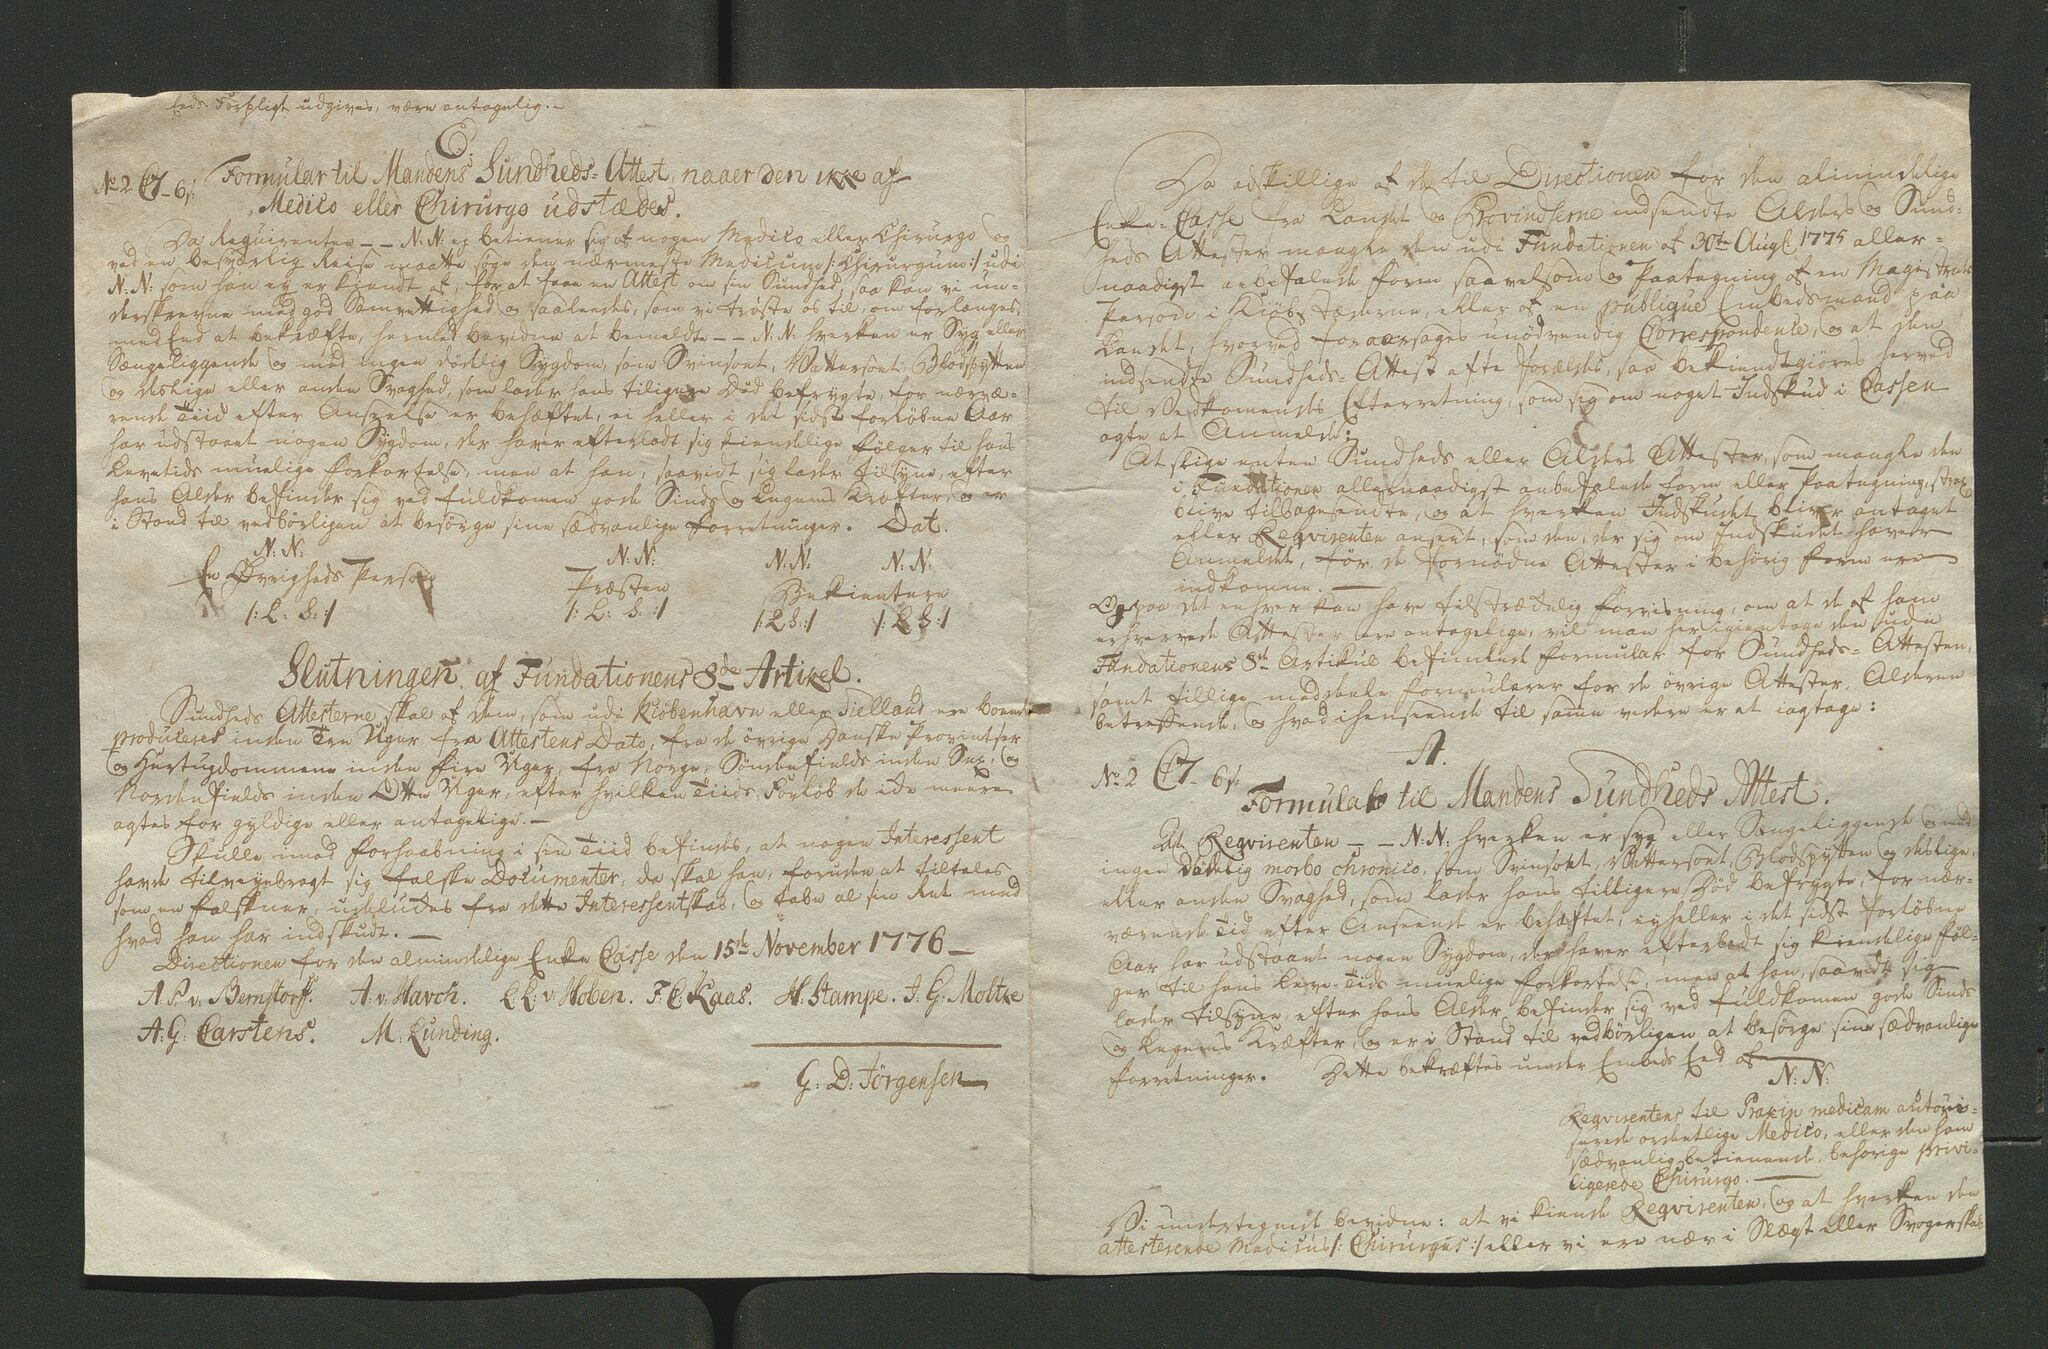 Eeds Forpligt udgives, være antagelig. –
C.
No 2 C7 – 6s: Formular til Mandens Sundheds-Attest, naaer den ikke af
Medico eller Chirurgo udstædes.
Da Requirenten – – N: N: ej betiener sig af nogen Medico eller Chirurgo og
ved en besværlig Reise maatte søge den nærmeste Medicum /: Chirurgum :/ udi
N: N: som han ey er kiendt af, for at faae en Attest om sin Sundhed, saa kan vi un-
derskrevne med god Samvittighed og saaledes, som vi trøste os til, om forlanges,
med Eed at bekræfte, hermed bevidne at bemeldte – – N: N: hverken er Syg eller
Sængeliggende og med ingen dødelig Sygdom, som Svinsoet, Vattersoet, Blodspytten
og deslige eller anden Svaghed, som lader hans tiligere Død befrygte, for nærvæ-
rende Tiid efter Anseelse er behæftet, ei heller i det sidst forløbne Aar
har udstaaet nogen Sygdom, der haver efterladt sig kiendelige Følger til hans
Levetids muelige Forkortelse, men at han, saavidt sig lader tilsyne, efter
hans Alder befinder sig ved fuldkomen gode Sinds og Legems Kræfter, og er
i Stand til vedbørligen at besørge sine sædvanlige Forretninger. Dat.
N: N: N: N: N: N: N: N:
En Øvrigheds Person Præsten Bekientere
/: L: S: :/ /: L: S: :/ /: L S: :/ /: L S: :/
Slutningen af Fundationens 8de Artikel.
Sundheds Attesterne skal af dem, som udi Kiøbenhavn eller Siælland ere boende
produceres inden Tre Uger fra Attestens Dato, fra de øvrige Danske Provintser
og Hertugdommene inden Fire Uger, fra Norge, Søndenfields inden Sex, og
Nordenfields inden Otte Uger, efter hvilken Tiids Forløb de icke meere
agtes for gyldige eller antagelige. –
Skulle mod Forhaabning i sin Tiid befindes, at nogen Interessent
havde tilveyebragt sig falske Documenter, da skal han, foruden at tiltales
som en Falskner, udeludes fra dette Interessentskab, og tabe al sin Ret med
hvad han har indskudt. –
Directionen for den almindelige Enke Casse den 15de November 1776 –
A. P. v. Bernstorff. A. v. Hauch. C. L. v. Hoben. F. C. Kaas. H. Stampe. J. G. Moltke
A: G: Carstens. M. Lunding.
G: D: Jörgensen
Da adskillige af de til Directionen for den almindelige
Enke-Casse fra Landet og Provindserne indsendte Alders og Sund-
heds Attester mangle den udi Fundationen af 30te Augs: 1775 aller-
naadigst anbefalede Form saavelsom og Paategning af en Magistrats
Person i Kiøbstæderne, eller af en publique Embedsmand paa
Landet, hvorved foraarsages unødvendig Correspondence, og at den
indsendte Sundheds-Attest ofte forældes, saa bekiendtgiøres herved
til Vedkomendes Efterretning, som sig om noget Indskud i Cassen
agte at Anmelde:
At slige enten Sundheds eller Alders Attester, som mangle den
i Fundationen allernaadigst anbefalede Form eller Paategning, strax
blive tilbagesendte, og at hverken Indskudet bliver antaget
eller Reqvirenten anseet, som den, der sig om Indskudet haver
Anmeldet, før de fornødne Attester i behørig Form ere
indkomne. –
Og paa det enhver kan have tilstrækkelig Forvisning, om at de af ham
erhvervede Attester ere antagelige, vil man her igientage den udi
Fundationens 8de Artikul befindtlige Formular for Sundheds-Attesten,
samt tillige meddeele Formularer for de øvrige Attester, Alderen
betreffende, og hvad i henseende til samme videre er at iagtage:
A.
No 2 C7 – 6s:
Formular til Mandens Sundheds Attest.
At Reqvirenten – – N: N: hverken er syg eller Sængeliggende og med
ingen Dødelig morbo chronico, som Svinsoet, Vattersoet, Blodspytten og deslige,
eller anden Svaghed, som lader hans tilligere Død befrygte, for nær-
værende Tid efter Anseende er behæftet, ey heller i det sidst forløbne
Aar har udstaaet nogen Sygdom, der haver efterladt sig kiendelige Føl-
ger til hans Leve-Tids muelige Forkortelse, men at han, saavidt sig
lader tilsyne, efter hans Alder befinder sig ved fuldkomen gode Sinds
og Legems Kræfter, og er i Stand til vedbørligen at besørge sine sædvanlige
Forretninger. Dette bekræftes under Embeds Eed af
N: N:
Reqvirentens til Praxin medicam autori-
serede ordentlige Medico, eller den ham
sædvanlig betienende, behørige privi-
ligerede Chirurgo. –
Vi undertegnede bevidne: at vi kiende Reqvirenten, og at hverken den
attesterende Medicus /: Chirurgus :/ eller vi ere nær i Slægt eller Svogerskab